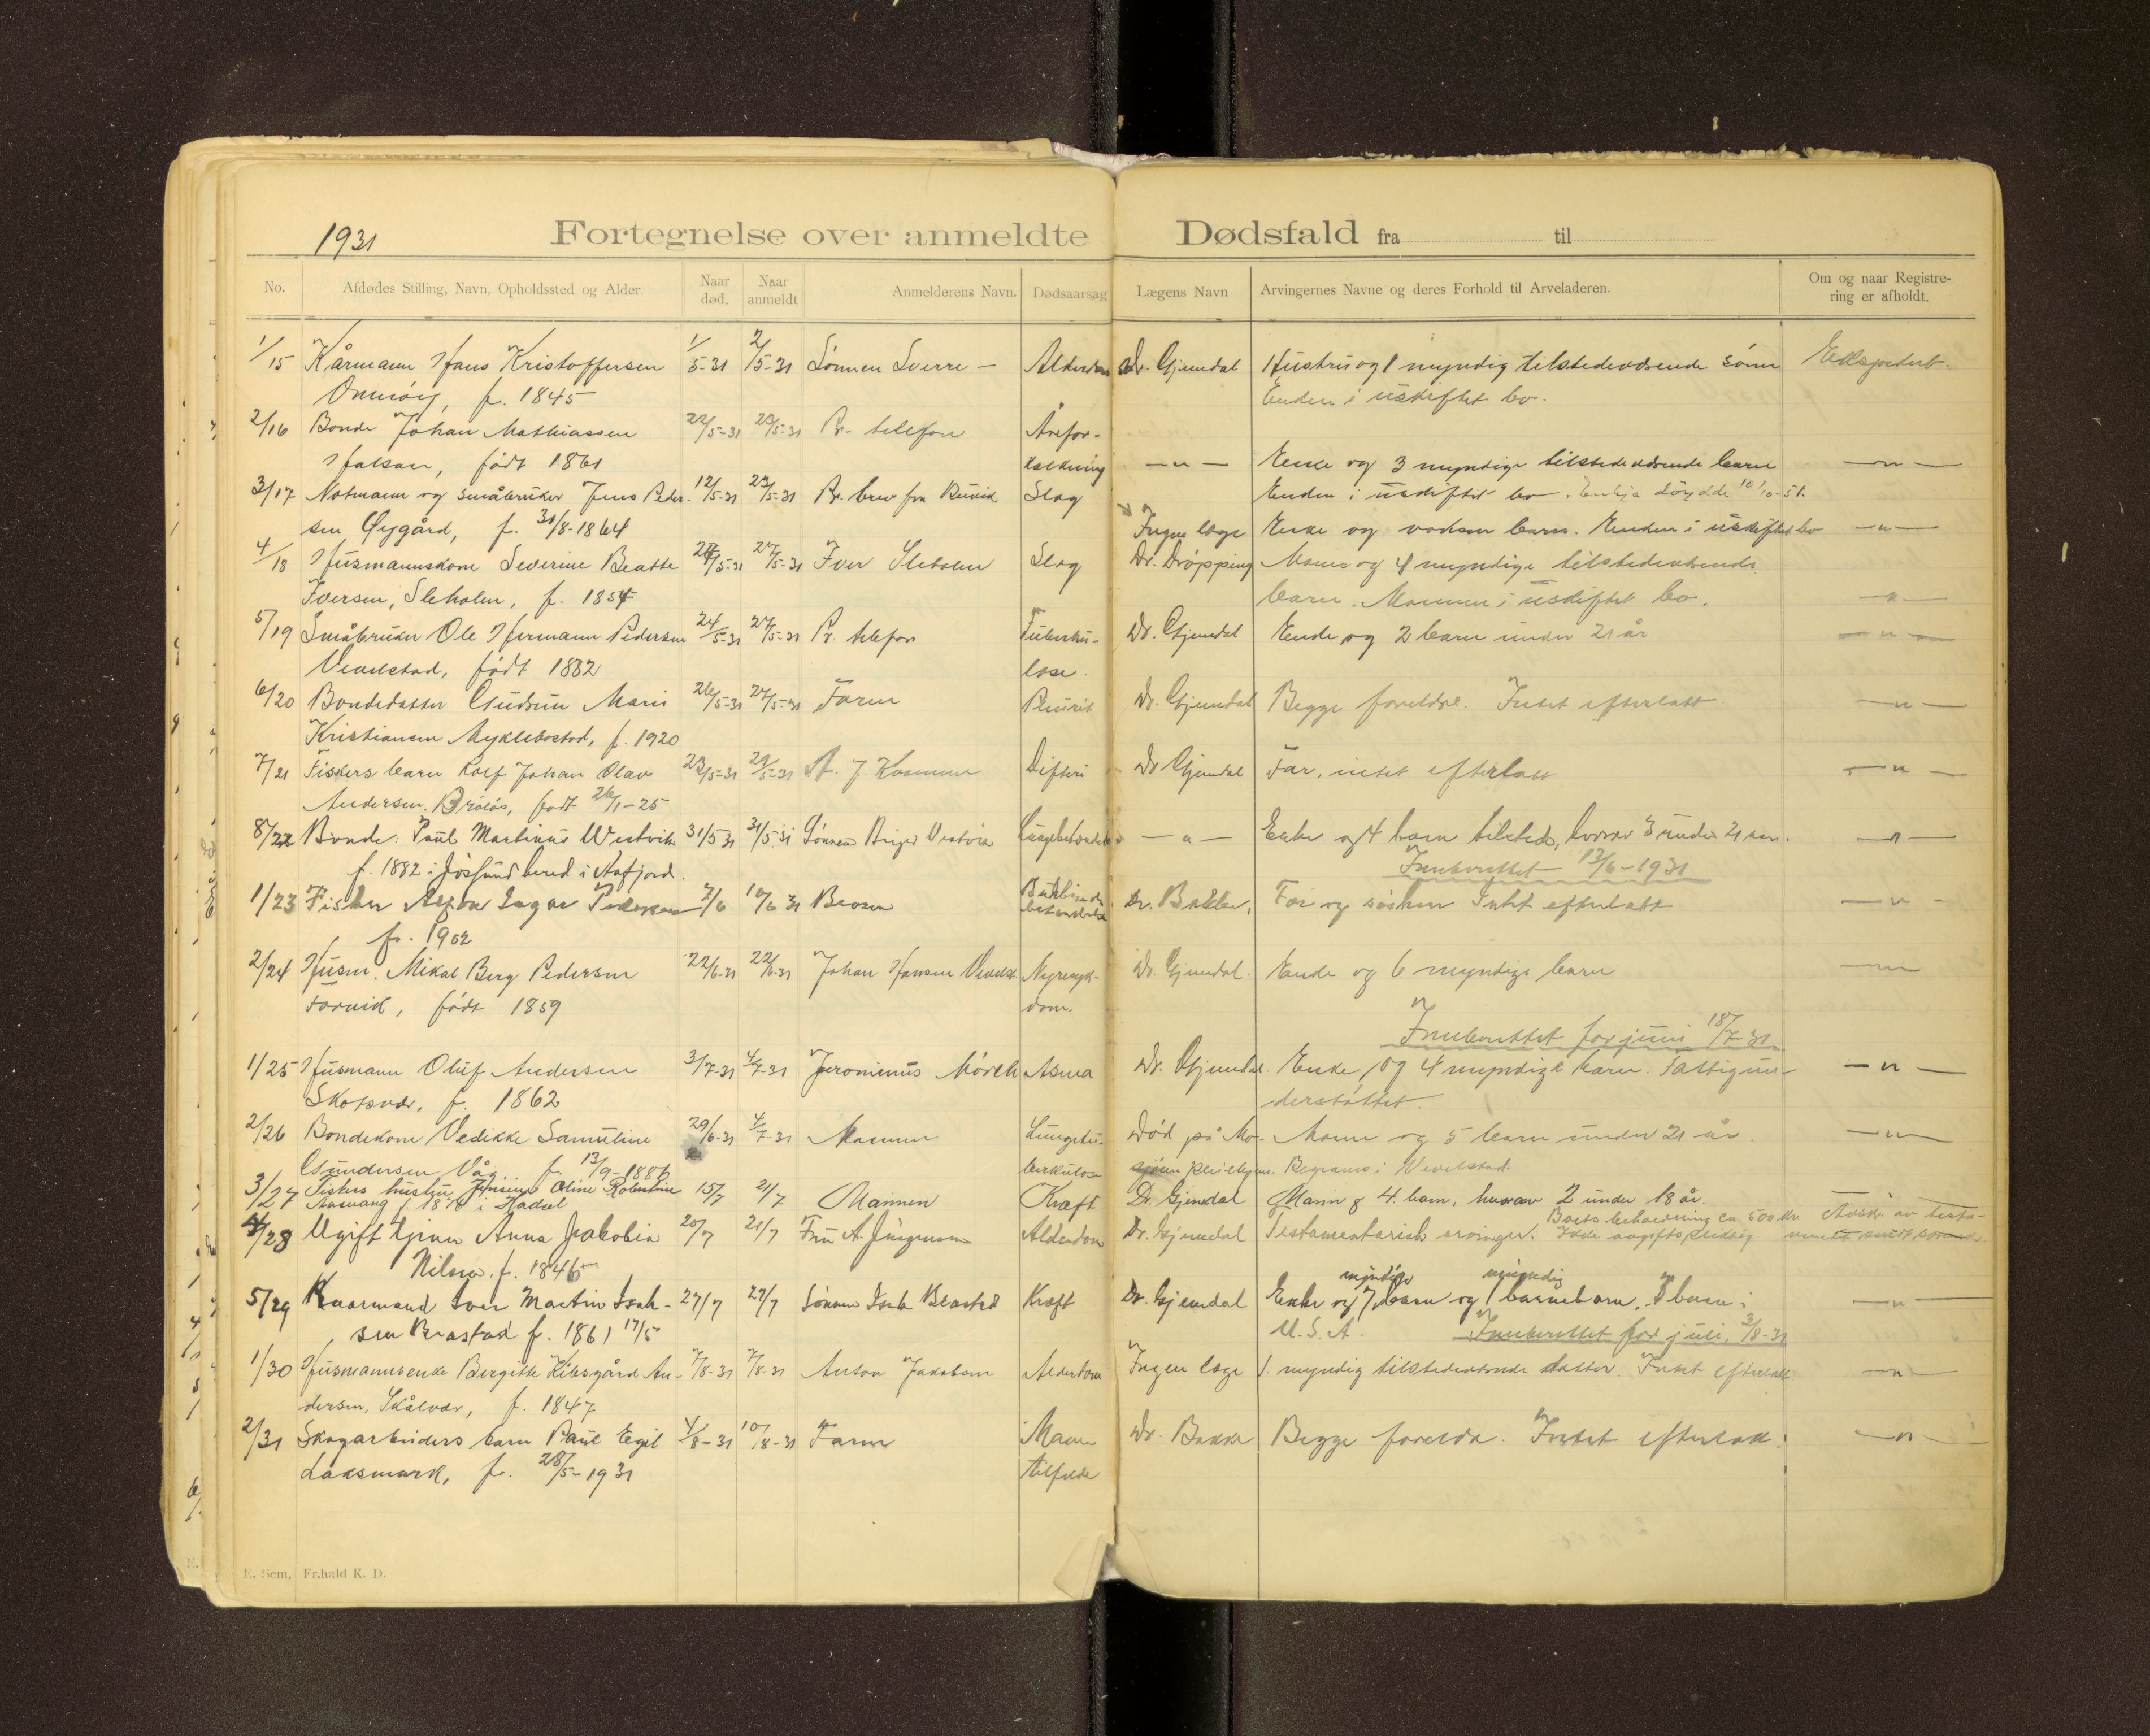 1931 Fortegnelse over anmeldte Dødsfald fra til
No. Afdødes Stilling, Navn, Opholdssted og Alder. Naar død. Naar anmeldt Anmelderens Navn. Dødsaarsag Lægens Navn Arvingernes Navne og deres Forhold til Arveladeren. Om og naar Registrering er afholdt.
1/15 Kårmann Hans Kristoffersen 1/5-31 2/5-31 Sønnen Sverre — Alderdom Dr. Gjendal Hustru og 1 myndig tilstedeværende sønn Ekspedert.
f. 1845 Enken i uskiftet bo.
2/16 Bonde Johan Mathiassen 22/5-31 23/5-31 Pr. telefon Årefor-
født 1861 kalkning — " — Enke og 3 myndige tilstedeværende barn — " —
3/17 Notmann og småbruker Jens Peder- 12/5-31 23/5-31 Pr. brev fra Slag Enken i uskiftet bo. Enkja døydde 10/10-51.
sen Øygård, f. 31/8-1864 Ingen læge Enke og voksen barn. Enken i uskiftet bo — " —
4/18 Husmannskone Severine Beatte 27/5-31 Iver Sleholm Slag Dr. Drøpping Mann og 4 myndige tilstedeværende
Iversen, Sleholm, f. 1854 barn. Mannen i uskiftet bo. — " —
5/19 Småbruker Ole Hermann Pedersen 24/5-31 27/5-31 Pr. telefon Tuberku- Dr. Gjendal Enke og 2 barn under 21 år — " —
Vevelstad, født 1882 lose.
6/20 Bondedatter Gudrun Marie 26/5-31 27/5-31 Faren Pleurit Dr. Gjendal Begge foreldre. Intet efterlatt — " —
Kristiansen Myklebostad, f. 1920
7/21 Fiskers barn Rolf Johan Olav 23/5-31 29/5-31 A. J. Difteri Dr Gjendal Far, intet efterlatt — " —
Andersen, født 26/1-25
8/22 Bonde Paul Martinus Westvik 31/5 31 31/5 31 Sønnen Birger Vestvik — " — Enke og 4 barn tilstede, hvorav 3 under 21 aar. — " —
f. 1882 i Jøssund herred i Aafjord. Innberettet 13/6-1931
1/23 Fisker Ingar Pedersen 7/6 10/6 31 Broren Dr. Bakke, Far og søsken Intet efterlatt — " —
f. 1902
2/24 Husm. Mikal Berg Pedersen 22/6-31 22/6-31 Johan Hansen Nyresyk- Dr. Gjendal. Enke og 6 myndige barn — " —
Forvik, født 1859 dom.
Innberettet for juni 18/7-31.
1/25 Husmann Oluf Andersen 3/7-31 4/7-31 Jeronimus Mörch Asma Dr. Gjendal. Enke og 4 myndige barn. Fattigun- — " —
f. 1862 derstøttet.
2/26 Bondekone Vedikke Samuline 29/6-31 4/7-31 Mannen Lungetu- Død på Mo- Mann og 5 barn under 21 år. — " —
Gundersen Våg f. 13/9-1886 berkulose sjøen pleiehjem. Begraves i Vevelstad.
3/27 Fiskers hustru Jensine Oline Robertine 15/7 21/7 Mannen Kræft Dr. Gjendal Mann og 4 barn, hvorav 2 under 18 år.
f. 1876 i Hadsel Boets beholdning ca. 500 kr
4/28 Ugift Anna Jakobia 20/7 21/7 Fru A. Jürgensen Alderdom Dr. Gjendal Testamentarisk arvinger. Ikke avgiftspliktig Avskr. av testa-
Nilsen. f. 1846
5/29 Kaarmand Iver Martin Isak- 27/7 27/7 Sønnen Isak Brastad Kræft Dr. Gjendal Enke og 7 myndige barn og 1 myndig barnebarn. barn i — " —
sen Brastad f. 1861 17/5 U.S.A. Innberettet for juli, 3/8-31
1/30 Husmannsenke Bergitte Kibsgård An- 7/8-31 7/8-31 Anton Jakobsen Alderdom Ingen læge 1 myndig tilstedeværende datter. Intet efterlatt — " —
dersen, Skålvær, f. 1847
2/31 Skogarbeiders barn Paul Egil 4/8-31 10/8-31 Faren Mave Dr. Bakke Begge foreldre. Intet efterlatt. — " —
Laksmark, f. 28/5-1931 tilfelde
E. Sem, Fr.hald K. D.